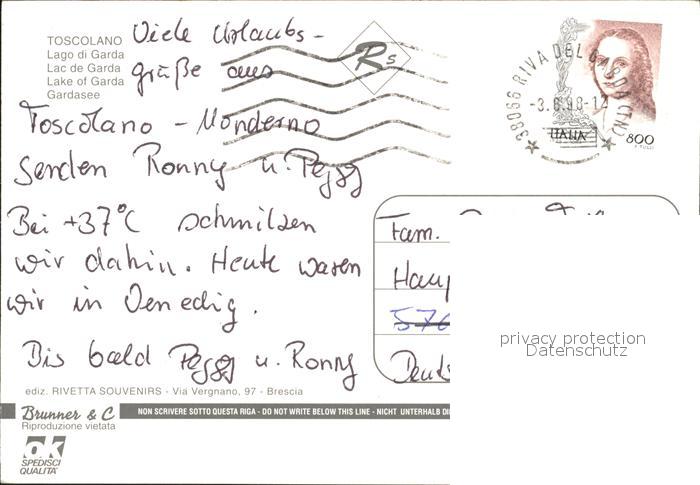 TOSCOLANO
Lago di Garda
Lac de Garda
Lake of Garda
Gardasee
Viele Urlaubs-
grüße aus
Toscolano - Monderno
senden Ronny u. Peggy
Bei +37°C schmilzen
wir dahin. Heute waren
wir in Venedig.
Bis bald Peggy u. Ronny
Rs
38066 RIVA DEL GARDA (TN)
-3.8.98-12
ITALIA
800
Fam.
Haup
576
Deuts
privacy protection
Datenschutz
ediz. RIVETTA SOUVENIRS - Via Vergnano, 97 - Brescia
Brunner & C
Riproduzione vietata
NON SCRIVERE SOTTO QUESTA RIGA - DO NOT WRITE BELOW THIS LINE - NICHT UNTERHALB DI
ok
SPEDISCI
QUALITA'